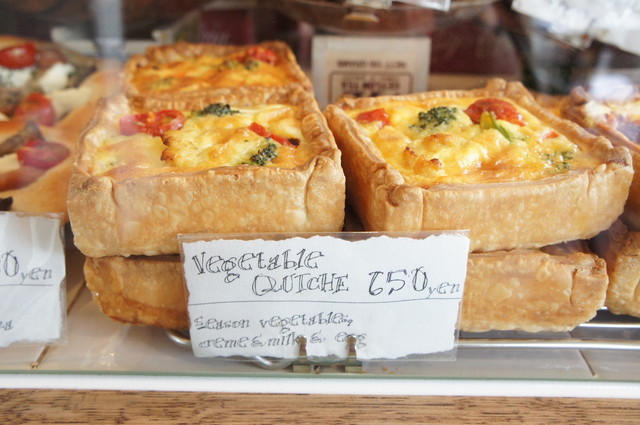 Vegetable
QUICHE 650yen
Season vegetables,
creme & milk & egg
0yen